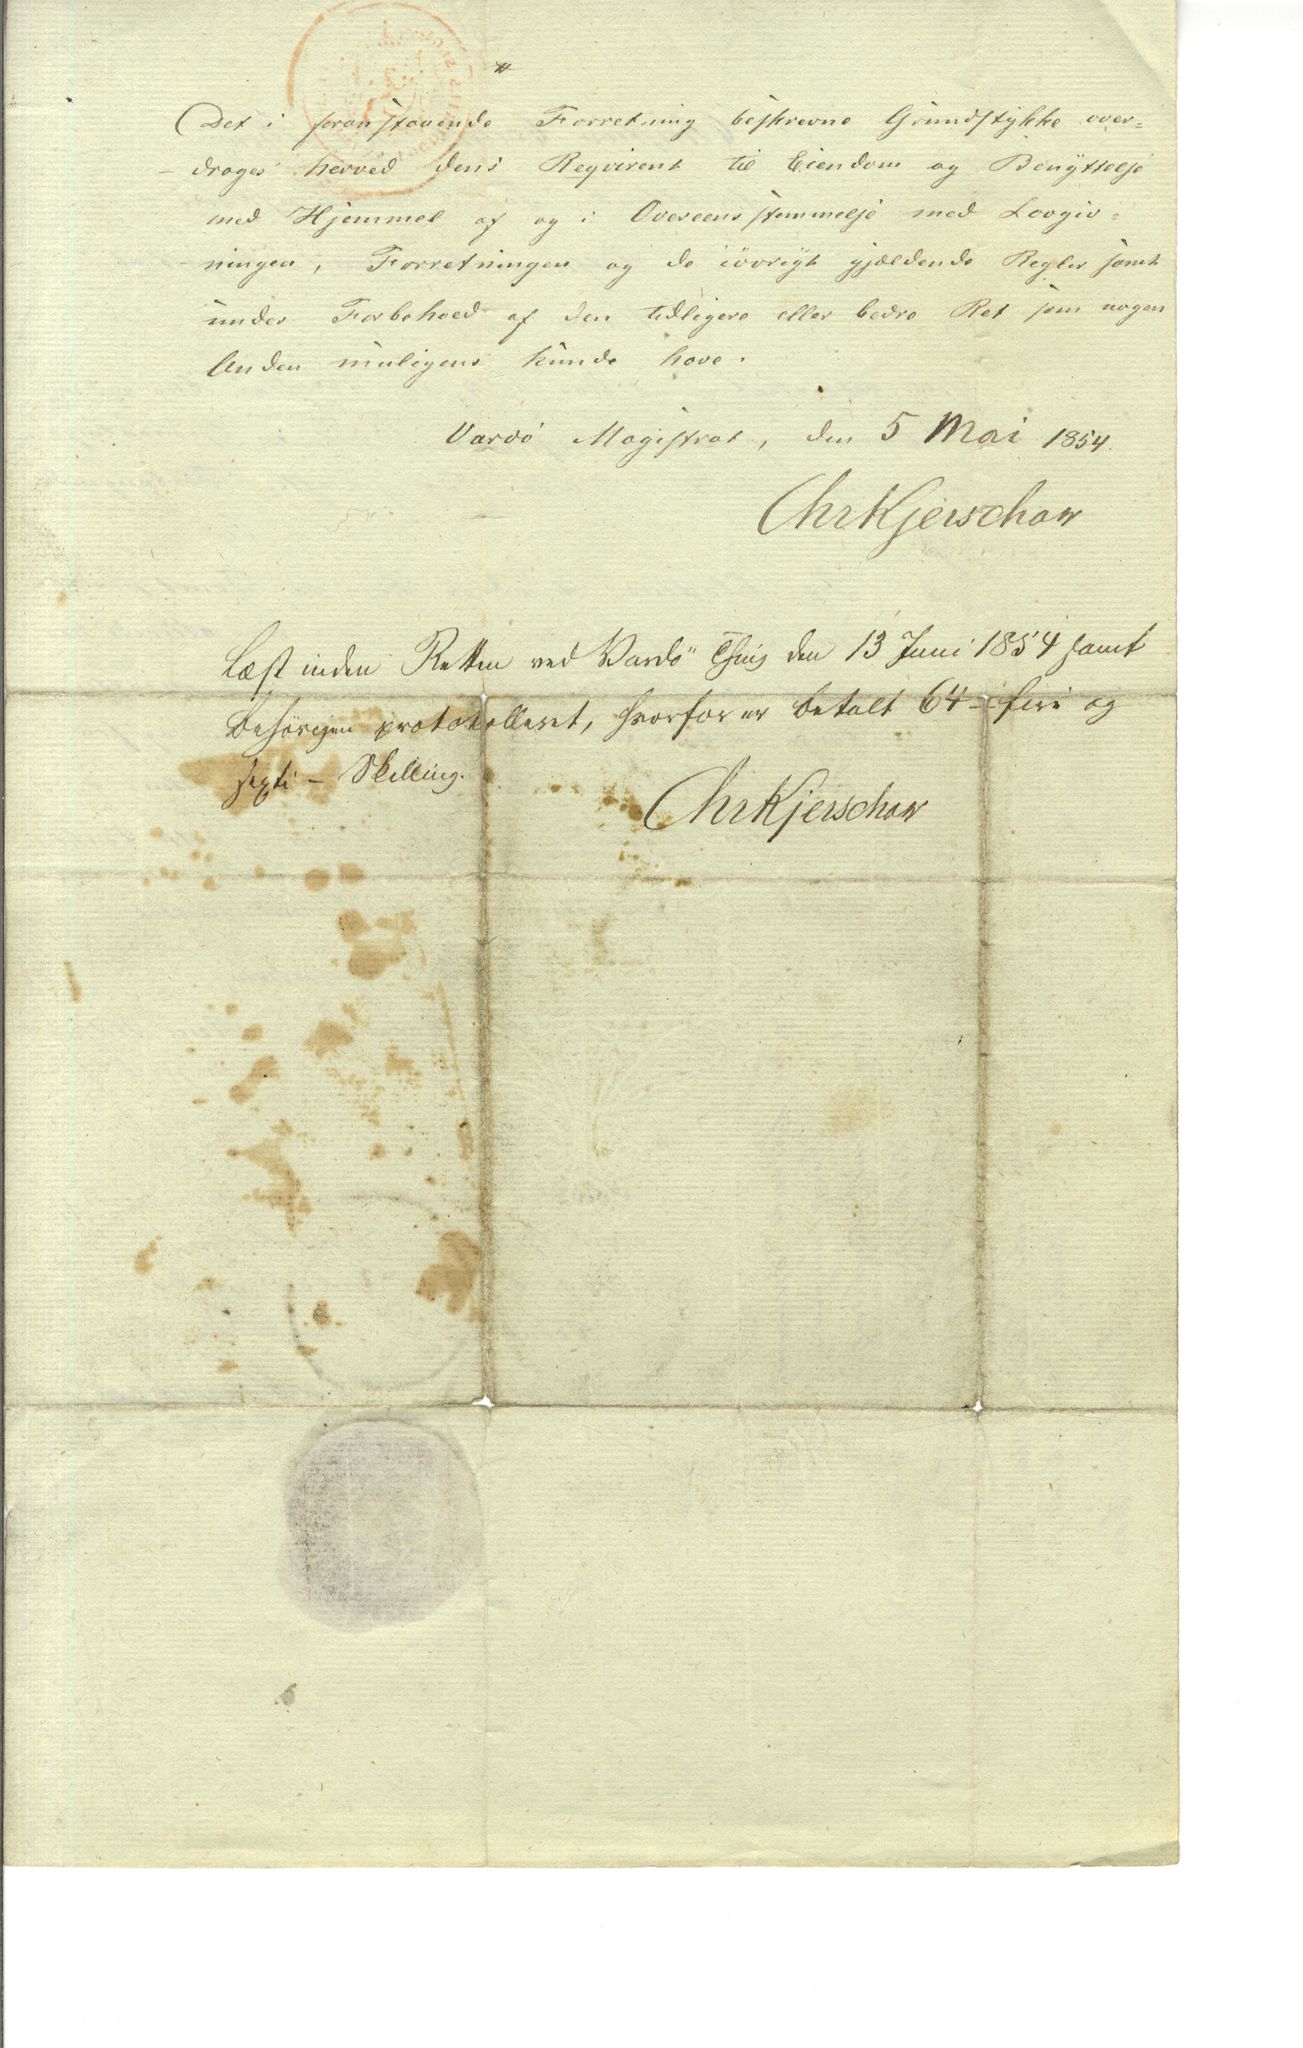 Det i foranstaaende Forretning beskrevne Grundstykke over=
drages herved dens Reqvirent til Eiendom og Benyttelse
med Hjemmel af og i Overeensstemmelse med Lovgiv=
ningen, Forretningen og de iøvrigt gjældende Regler samt
under Forbehold af den tidligere eller bedre Ret som nogen
Anden muligens kunde have.
Vardö Magistrat, den 5 Mai 1854.
Chr Kjerschow
Læst inden Retten ved Vardö Thing den 13 Juni 1854 samt
behörigen protokolleret, hvorfor er betalt 64 - fire og
sexti - Skilling.
Chr Kjerschow